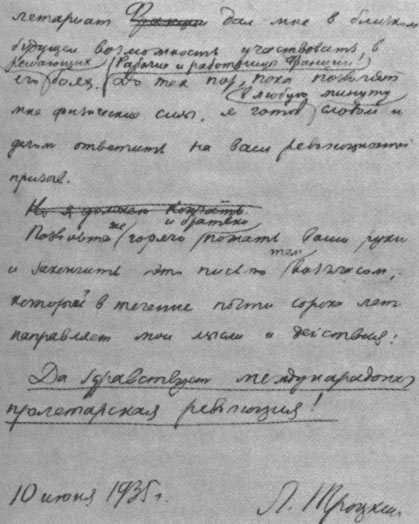 летариат Франции дал мне в близком
будущем возможность участвовать в
решающих Рабочие и работницы Франции!
его боях. До тех пор, пока позволят
в любую минуту
мне физические силы, я готов словом и
делом ответить на ваш революционный
призыв.
Но я должен кончать
же и братски
Позвольте горячо пожать ваши руки
тем
и закончить это письмо возгласом,
который в течение почти сорока лет
направляет мои мысли и действия:
Да здравствует международная
пролетарская революция!
10 июня 1935г. Л. Троцкий.